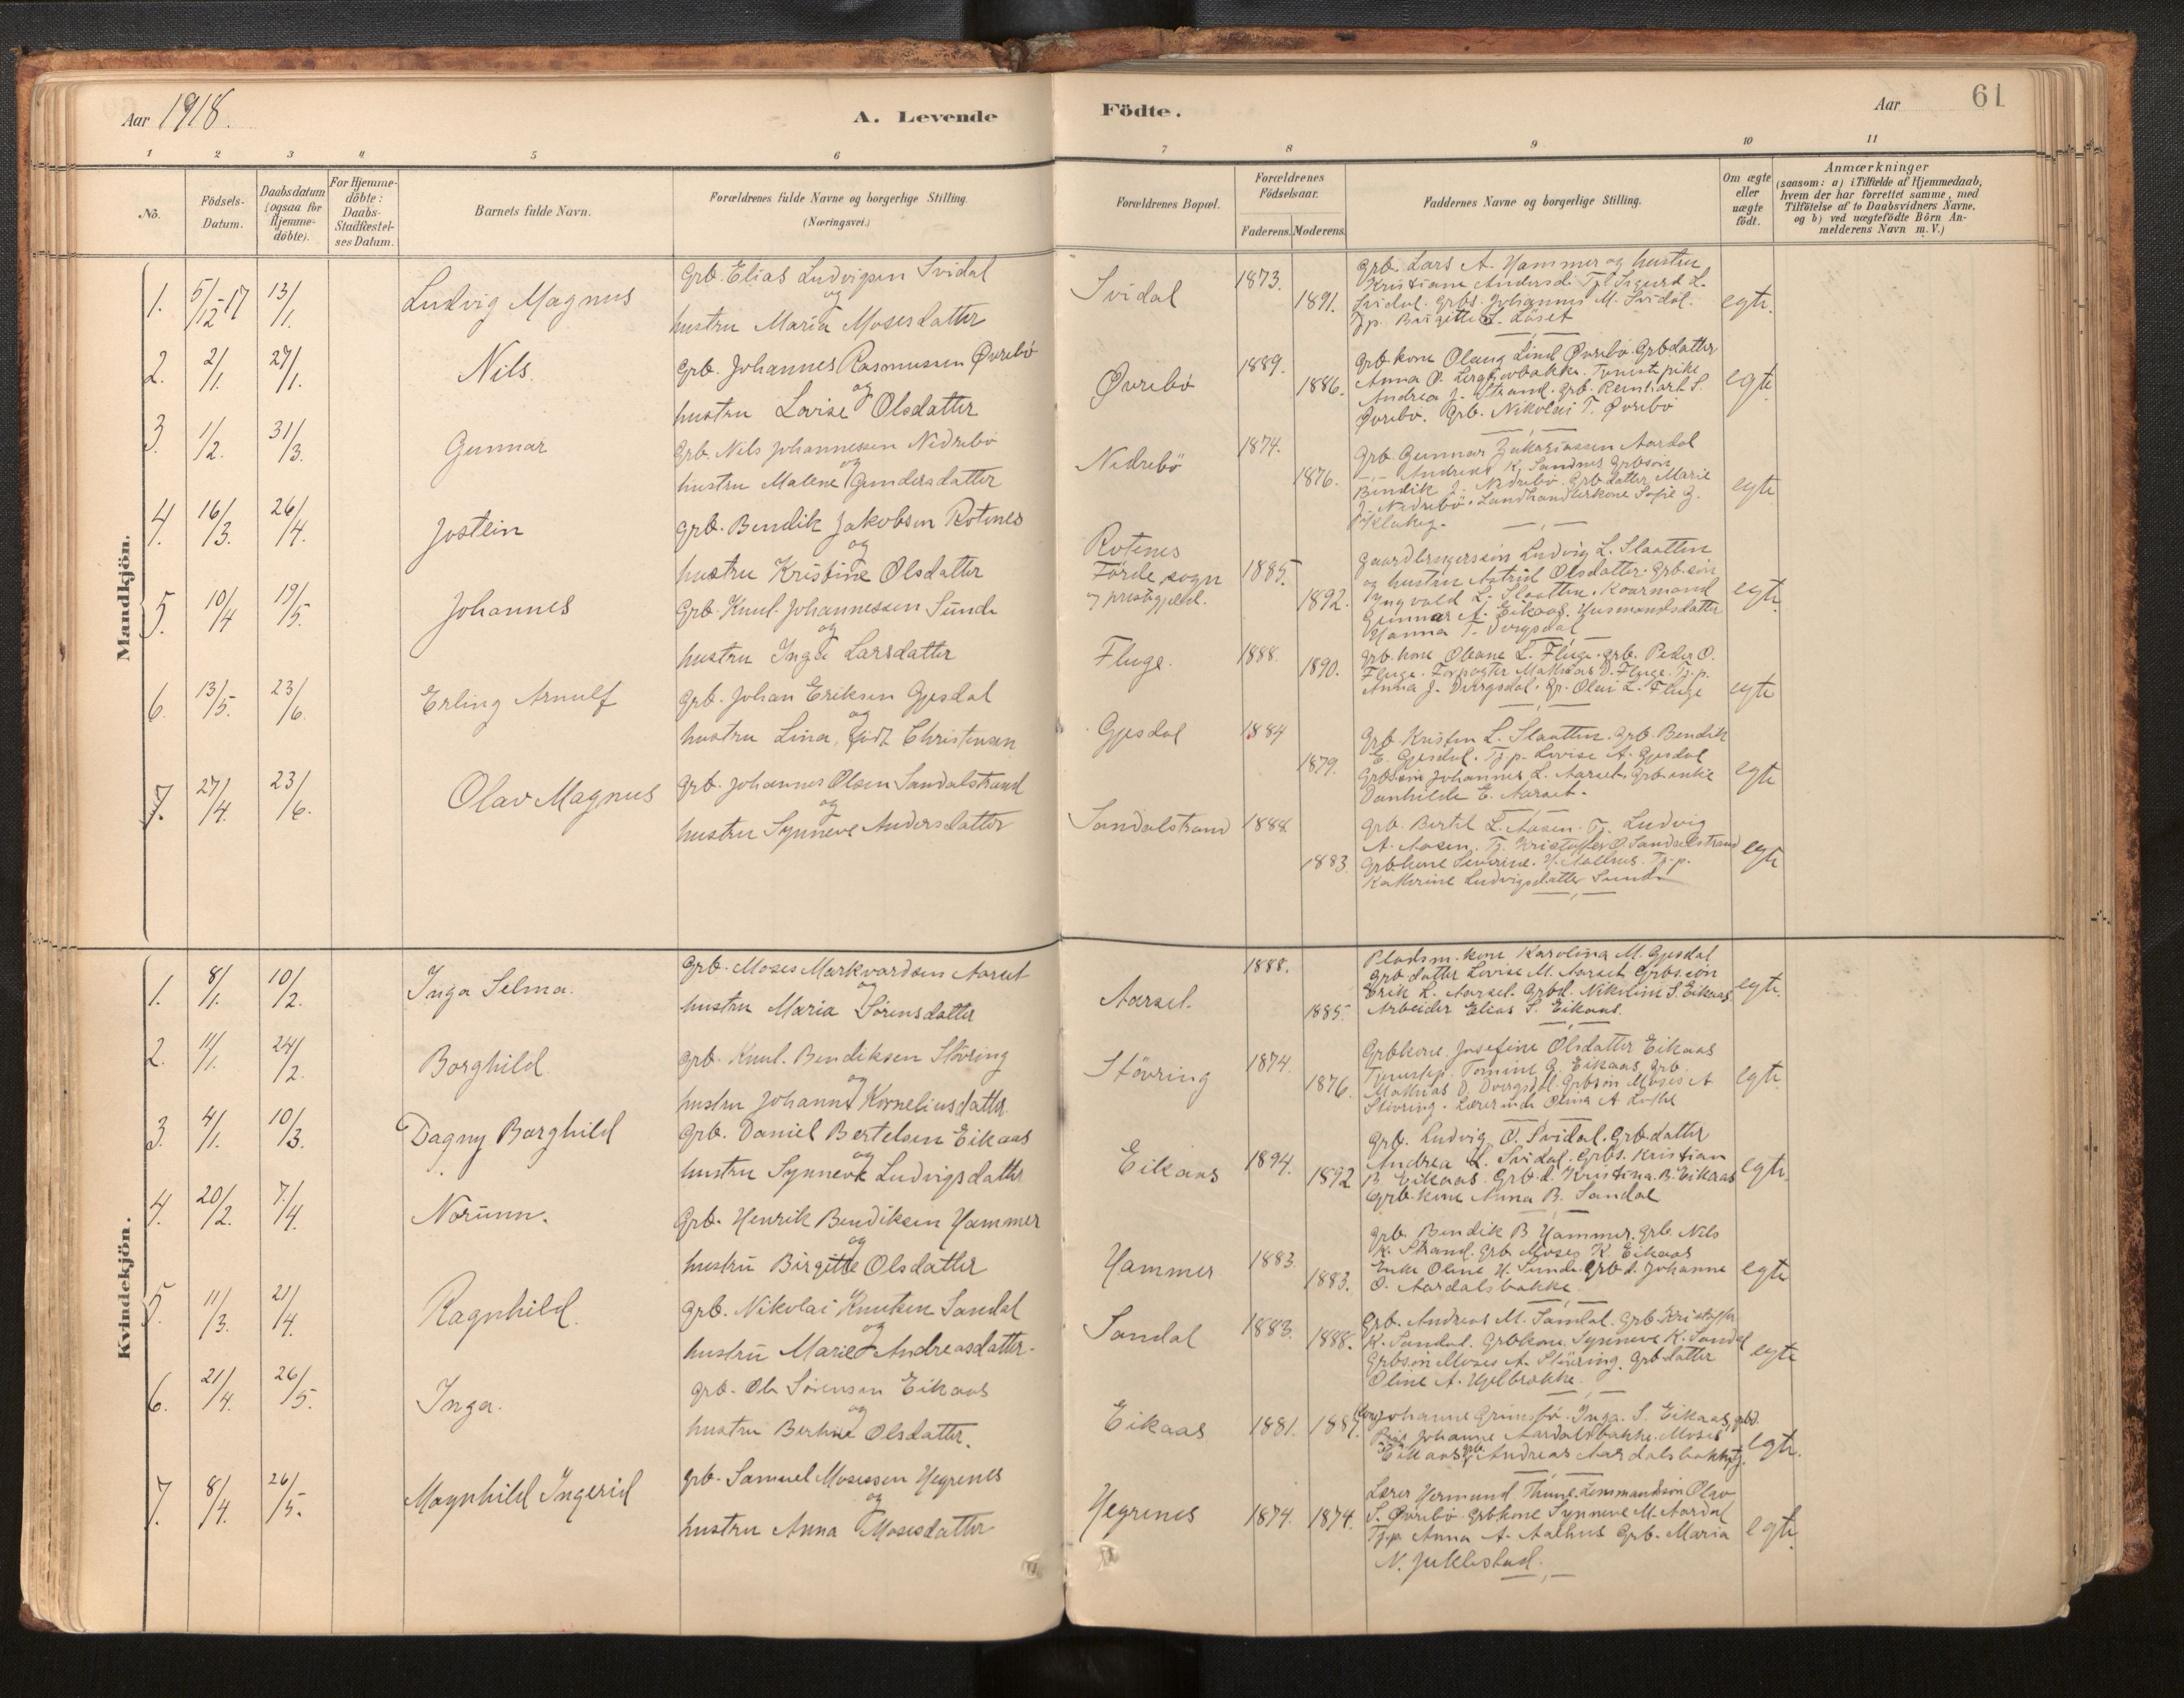 Aar 1918.
A. Levende
Födte.
Aar
61
1 2 3 4 5 6 7 8 9 10 11
No.
Födsels-
Datum.
Daabsdatum
(ogsaa for
Hjemme-
döbte).
For Hjemme-
döbte:
Daabs-
Stadfæstel-
ses Datum.
Barnets fulde Navn.
Forældrenes fulde Navne og borgerlige Stilling.
(Næringsvei.)
Forældrenes Bopæl.
Forældrenes
Födselsaar.
Faderens. Moderens.
Faddernes Navne og borgerlige Stilling.
Om ægte
eller
uægte
födt.
Anmærkninger
(saasom: a) i Tilfælde af Hjemmedaab,
hvem der har forrettet samme, med
Tilföielse af to Daabsvidners Navne,
og b) ved uægtefödte Börn An-
melderens Navn m. V.)
Mandkjön.
1. 5/12-17 13/1. Ludvig Magnus
Grb. Elias Ludvigsen Svidal
og
hustru Maria Mosesdatter
Svidal 1873. 1891.
Grb. Lars A. Hammer og hustru
Kristiane Andersd. Tj. Sigurd L.
Svidal. Grbs. Johannes M. Svidal.
Tjp. Birgitte L. Löset
egte.
2. 2/1. 27/1. Nils.
Grb. Johannes Rasmussen Øvrebö
og
hustru Lovise Olsdatter
Øvrebö 1889. 1886.
Grb.kone Olaug Lind Øvrebö. Grbdatter
Anna O. Tjenestepike
Andrea J. Strand. Grb. Reinhart S.
Øvrebö. Grb. Nikolai T. Øvrebö
egte
3. 1/2. 31/3. Gunnar
Grb. Nils Johannessen Nedrebö
og
hustru Malene Gundersdatter
Nedrebö 1874. 1876.
Grb. Gunnar Zakariassen Aardal
Andreas K. Sandnes Grbsön
Bendik J. Nedrebö. Grbdatter Marie
J. Nedrebö. Landhandlerkone Sofie J.
Klakeg.
egte
4. 16/3. 26/4. Jostein
Grb. Bendik Jakobsen Rotenes
og
hustru Kristine Olsdatter
Rotenes
Förde sogn
og prestegjeld.
1885. 1892.
Gaardbrugerssön Ludvig L. Slaatten
og hustru Astrid Olsdatter. Grb.sön
Yngvald L. Slaatten. Kaarmand
Gunnar A. Eikaas. Husmandsdatter
Hanna T. Dvergsdal
egte.
5. 10/4 19/5. Johannes
Grb. Knut Johannessen Sunde
og
hustru Inga Larsdatter
Fluge. 1888. 1890.
Grb.kone Oleane L. Fluge. Grb. Peder O.
Fluge. Forpagter Mathias D. Fluge. Tj.p.
Anna J. Dvergsdal. Tj. Olai L. Fluge
egte
6. 13/5. 23/6. Erling Arnulf
Grb. Johan Eriksen Gjesdal
og
hustru Lina, född Christensen
Gjesdal 1884 1879.
Grb. Kristen L. Slaatten. Grb. Bendik
E. Gjesdal. Tj p. Lovise A. Gjesdal
Grbsön Johannes L. Aarset. Grb.enke
Danhilde E. Aarset.
egte
7. 27/4. 23/6. Olav Magnus
Grb. Johannes Olsen Sandalstrand
og
hustru Synneve Andersdatter
Sandalstrand 1888. 1883.
Grb. Bertil L. Aasen. Tj. Ludvig
A. Aasen. Tj. Kristoffer O. Sandalstrand
Grbkone Severine H. Aalhus. Tj.p.
Katherine Ludvigsdatter Sunde
egte
Kvindekjön.
1. 8/1. 10/2. Inga Selma.
Grb. Moses Markvardsen Aarset
og
hustru Maria Sörensdatter
Aarset. 1888. 1885.
Pladsm. kone Karolina M. Gjesdal
Grb datter Lovise M. Aarset Grbs.sön
Erik L. Aarset. Grbd. Nikoline S. Eikaas
Arbeider Elias S. Eikaas.
egte.
2. 11/1. 24/2. Borghild.
Grb. Knut Bendiksen Stövring
og
hustru Johanne Kornelius datter.
Stövring 1874. 1876.
Grbkone Josefine Olsdatter Eikaas
Tjenestep. Tomine G. Eikaas Grb.
Mathias D. Dvergsdal. Grbsön Moses A
Stövring. Lærerinde Olina A. Lothe
egte.
3. 4/1. 10/3. Dagny Borghild
Grb. Daniel Bertelsen Eikaas
og
hustru Synneve Ludvigsdatter
Eikaas 1894. 1892
Grb. Ludvig O. Svidal. Grb.datter
Andrea L. Svidal. Grbs. Kristian
B. Eikaas. Grb.d. Kristina B. Eikaas
Grb.kone Anna B. Sandal
egte.
4. 20/2. 7/4. Norunn.
Grb. Henrik Bendiksen Hammer
og
hustru Birgitte Olsdatter
Hammer 1883. 1883.
Grb. Bendik B Hammer. Grb. Nils
K. Strand. Grb. Moses K. Eikaas
Enke Oline H. Sunde Grb d. Johanne
O. Aardalsbakke
egte
5. 11/3. 21/4. Ragnhild.
Grb. Nikolai Knutsen Sandal
og
hustru Marie Andreasdatter.
Sandal 1883. 1888.
Grb. Andreas M. Sandal. Grb. Kristoffer
K. Sandal. Grbkone Synneve K. Sandal
Grbsön Moses A. Stövring. Grb datter
Oline A. Hjelbrekke.
egte
6. 21/4. 26/5. Inga.
Grb. Ole Sörensen Eikaas
og
hustru Berthine Olsdatter.
Eikaas 1881. 1887.
Johanne Grimsbö. Inga S. Eikaas, grbd.
Johanne Aardalsbakke. Moses
Eikaas grb. Andreas Aardalsbakke tj.
egte.
7. 8/4. 26/5. Magnhild Ingerid
Grb. Samuel Mosessen Hegrenes
og
hustru Anna Mosesdatter
Hegrenes 1874. 1874.
Lærer Hermund Thune. Lensmandssön Olav
S. Øvrebö. Grbkone Synneve M. Aardal
Tj.p. Anna A. Aalhus Grb. Maria
N. Juklestad.
egte.